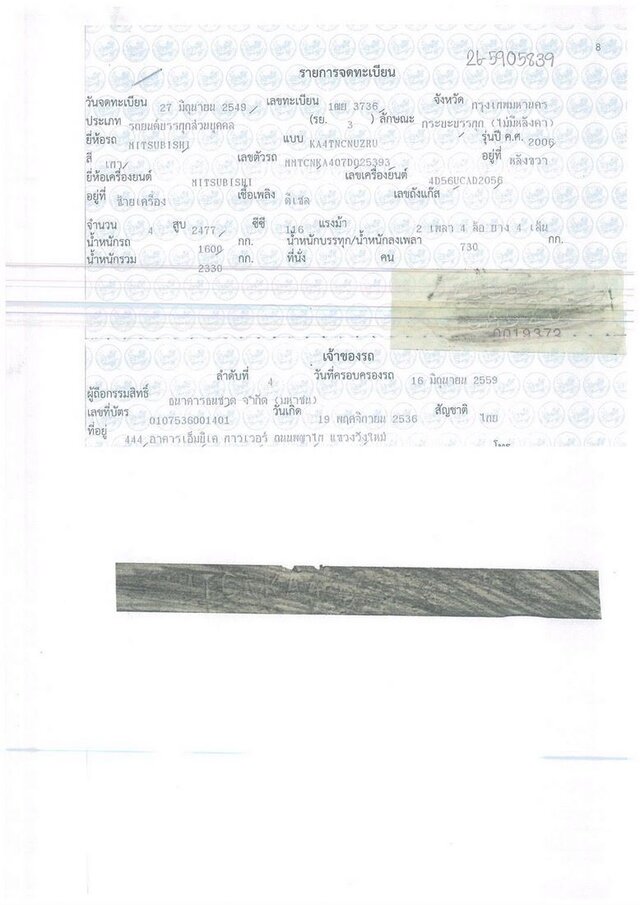 8
26-5905839
รายการจดทะเบียน
วันจดทะเบียน 27 มิถุนายน 2549 เลขทะเบียน 3736 จังหวัด กรุงเทพมหานคร
ประเภท รถยนต์บรรทุกส่วนบุคคล (รย. 3 ) ลักษณะ กระบะบรรทุก (ไม่มีหลังคา)
ยี่ห้อรถ MITSUBISHI แบบ KA4TNCNUZRU รุ่นปี ค.ศ. 2006
สี เทา เลขตัวรถ MMTCNKA407D025393 อยู่ที่ หลังขวา
ยี่ห้อเครื่องยนต์ MITSUBISHI เลขเครื่องยนต์ 4D56UCAD2056
อยู่ที่ ซ้ายเครื่อง เชื้อเพลิง ดีเซล เลขถังแก๊ส
จำนวน 4 สูบ 2477 ซีซี 116 แรงม้า 2 เพลา 4 ล้อ ยาง 4 เส้น
น้ำหนักรถ 1600 กก. น้ำหนักบรรทุก/น้ำหนักลงเพลา 730 กก.
น้ำหนักรวม 2330 กก. ที่นั่ง คน
0019373
เจ้าของรถ
ลำดับที่ 4 วันที่ครอบครองรถ 16 มิถุนายน 2559
ผู้ถือกรรมสิทธิ์ ธนาคารธนชาต จำกัด (มหาชน)
เลขที่บัตร 0107536001401 วันเกิด 19 พฤศจิกายน 2536 สัญชาติ ไทย
ที่อยู่ 444 อาคารเอ็มบีเค ทาวเวอร์ ถนนพญาไท แขวงวังใหม่